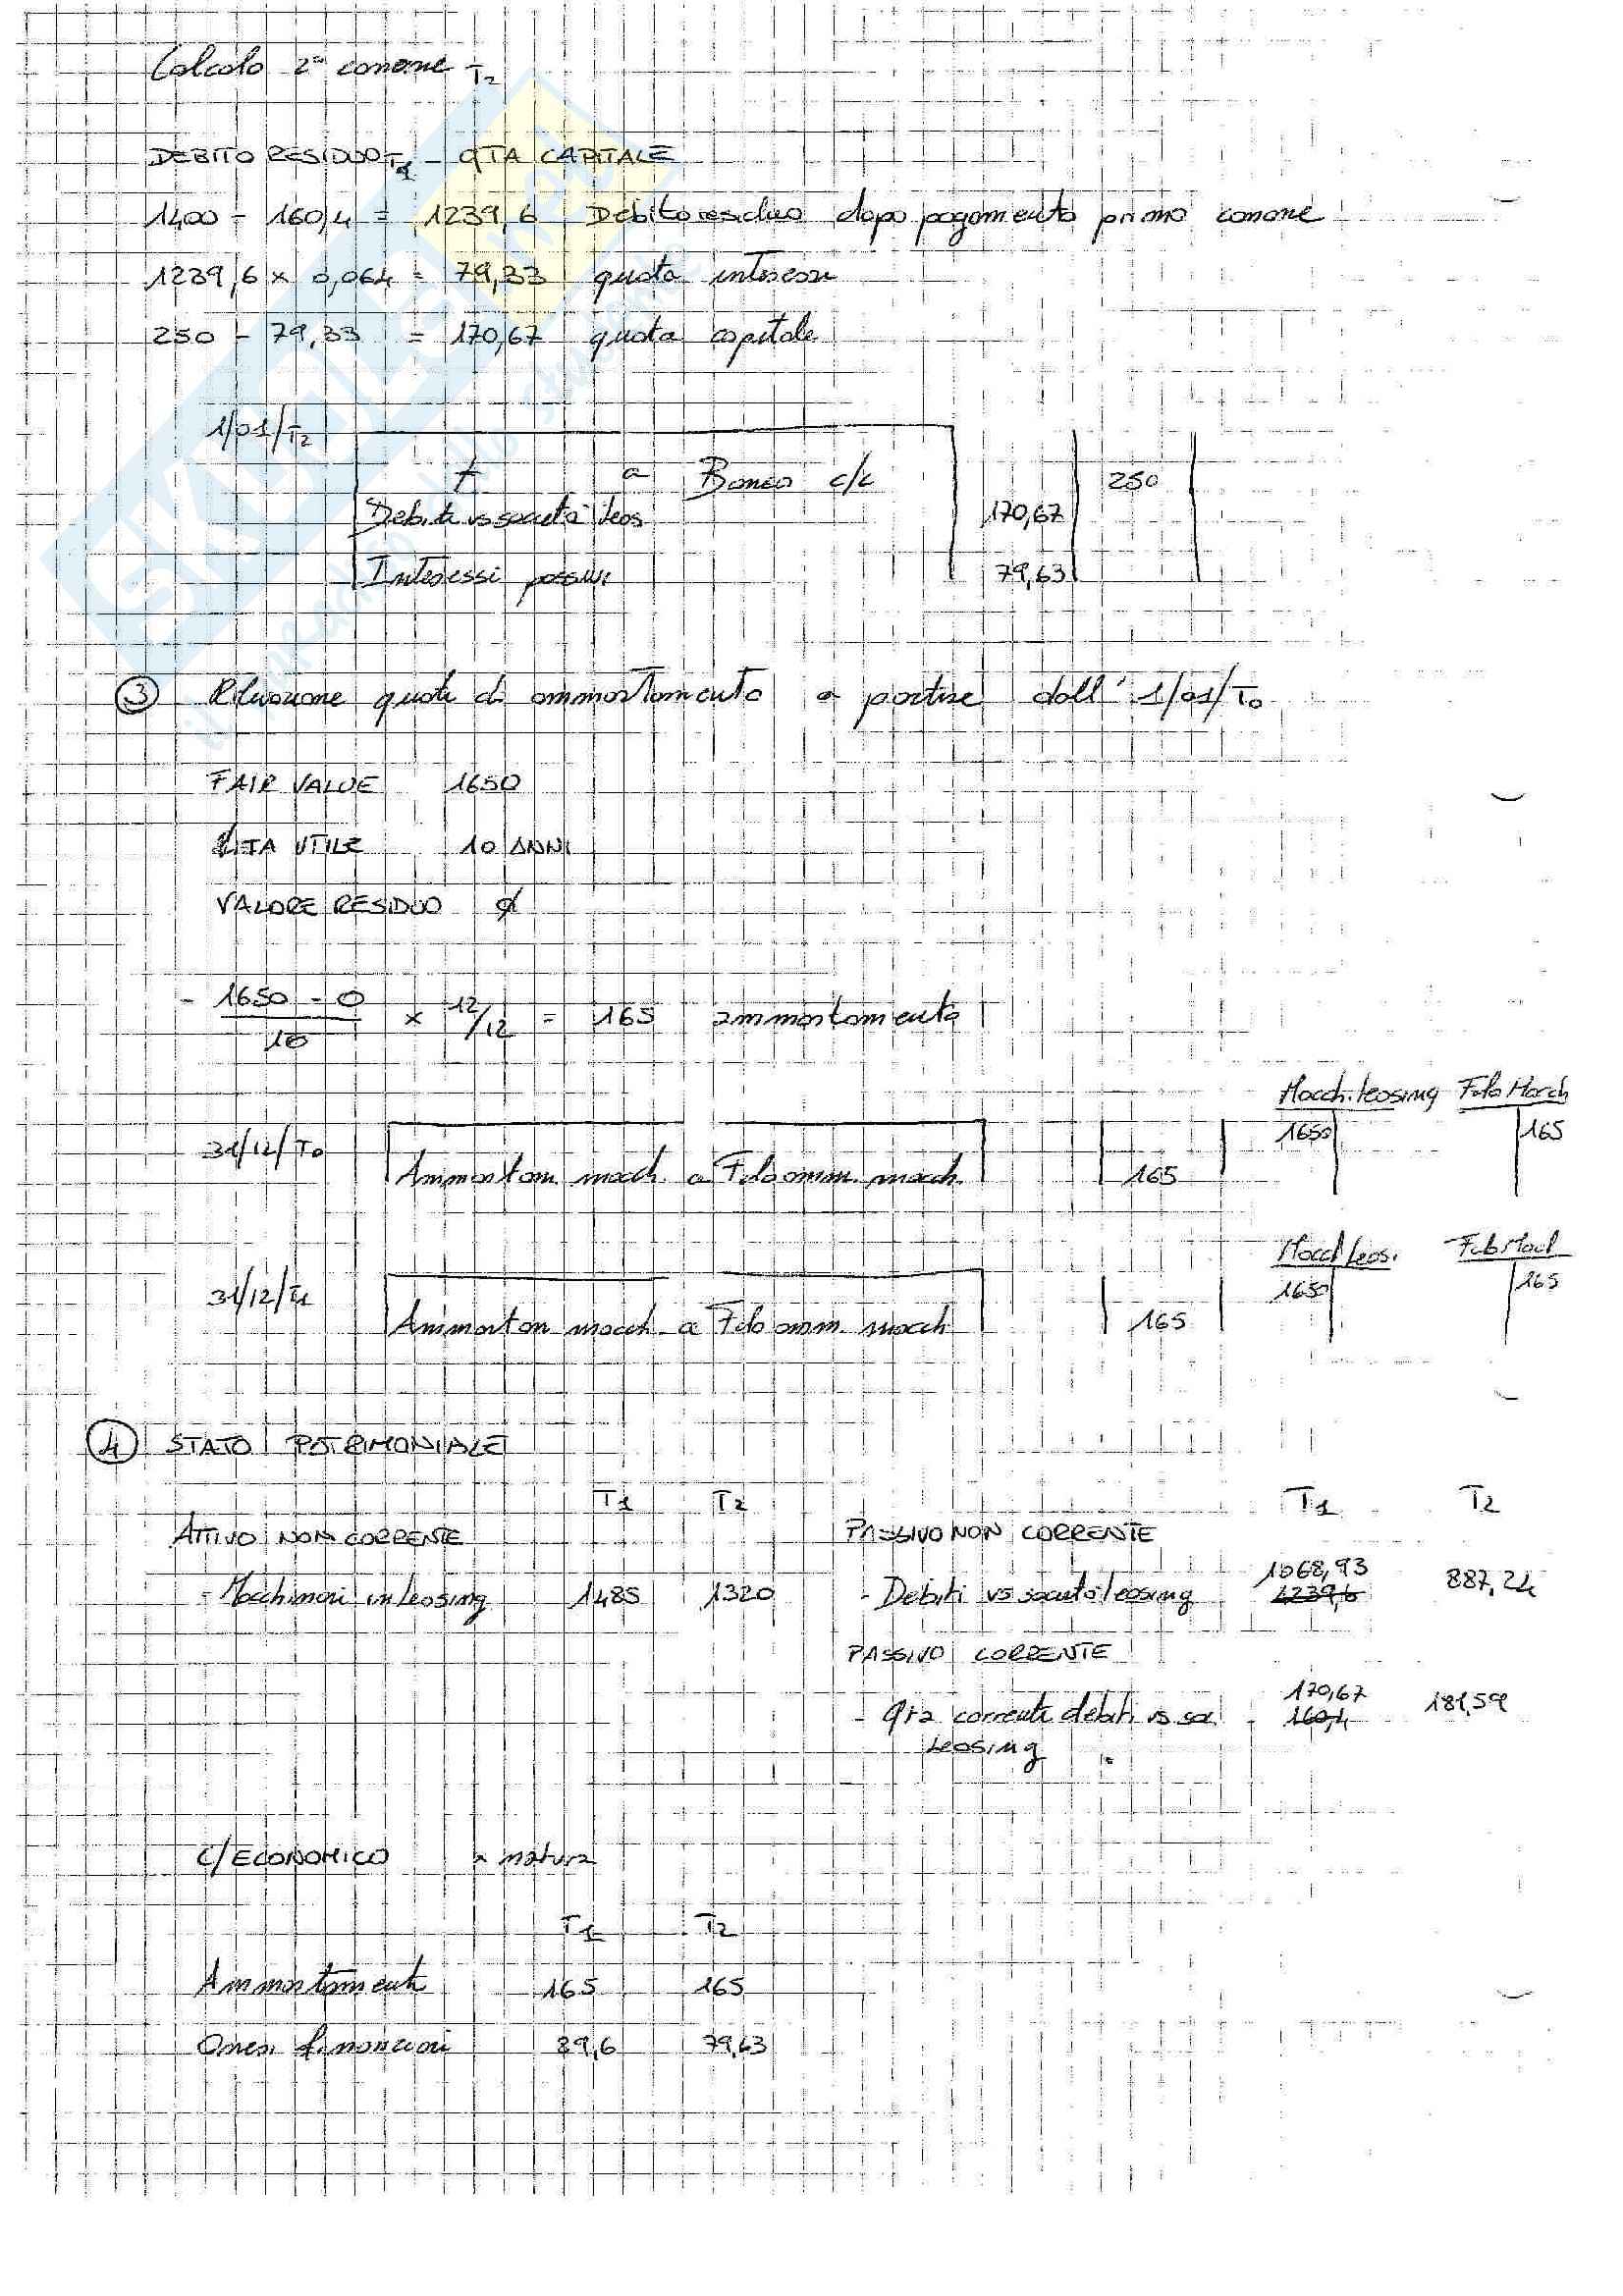 Calcolo 2° canone T2
DEBITO RESIDUO T1 - QTA CAPITALE
1400 - 160,4 = 1239,6 Debito residuo dopo pagamento primo canone
1239,6 x 0,064 = 79,33 quota interessi
250 - 79,33 = 170,67 quota capitale
1/01/T2
a Banca c/c 250
Debiti vs società leas 170,67
Interessi passivi 79,63
3 Rilevazione quote di ammortamento a partire dall' 1/01/T0
FAIR VALUE 1650
VITA UTILE 10 ANNI
VALORE RESIDUO Ø
1650 - 0
10
x 12/12 = 165 ammortamento
Macch. leasing Fdo Macch
1650 165
31/12/T0 Ammortam. macch. a Fdo amm. macch. 165
Macch leas. Fdo Macch
1650 165
31/12/T1 Ammortam macch a Fdo amm. macch 165
4 STATO PATRIMONIALE
T1 T2 T1 T2
ATTIVO NON CORRENTE PASSIVO NON CORRENTE
- Macchinari in leasing 1485 1320 - Debiti vs società leasing 1239,6 1068,93 887,24
PASSIVO CORRENTE
- Qta corrente debiti vs soc leasing 160,4 170,67 181,59
C/ECONOMICO x natura
T1 T2
Ammortamenti 165 165
Oneri finanziari 89,6 79,63